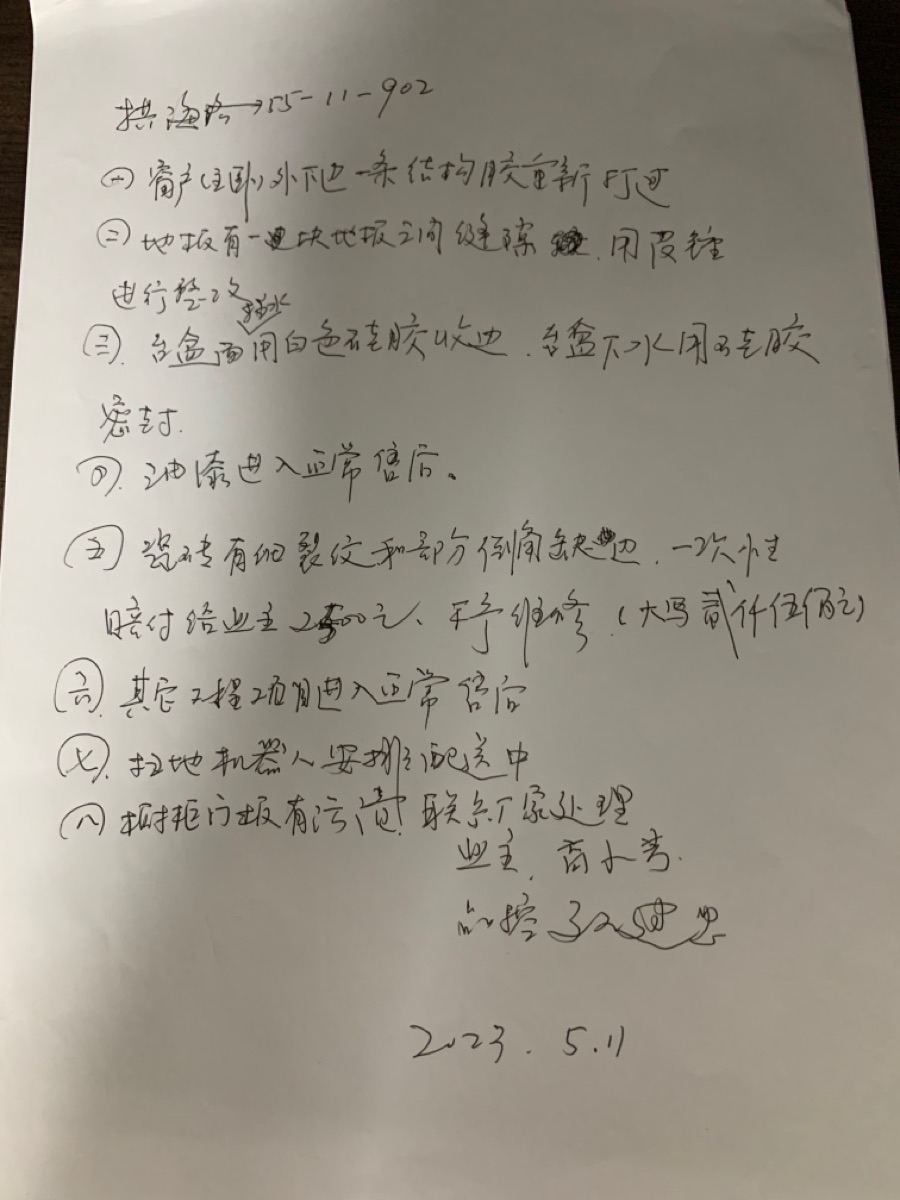 拱海路55-11-902
(一)窗户(主卧)外下边一条结构胶重新打过
(二)地板有一块地板之间缝隙,用皮锤
进行整改
挡水
(三).台盆面用白色硅胶收边.台盆下水用硅胶
密封.
(四).油漆进入正常售后。
(五)瓷砖有细裂纹和部分倒角缺边.一次性
赔付给业主2500元、不予维修.(大写贰仟伍佰元)
(六).其它工程项目进入正常售后
(七).扫地机器人安排配送中
(八)橱柜门板有污渍.联系厂家处理
业主.
品控
2023.5.11